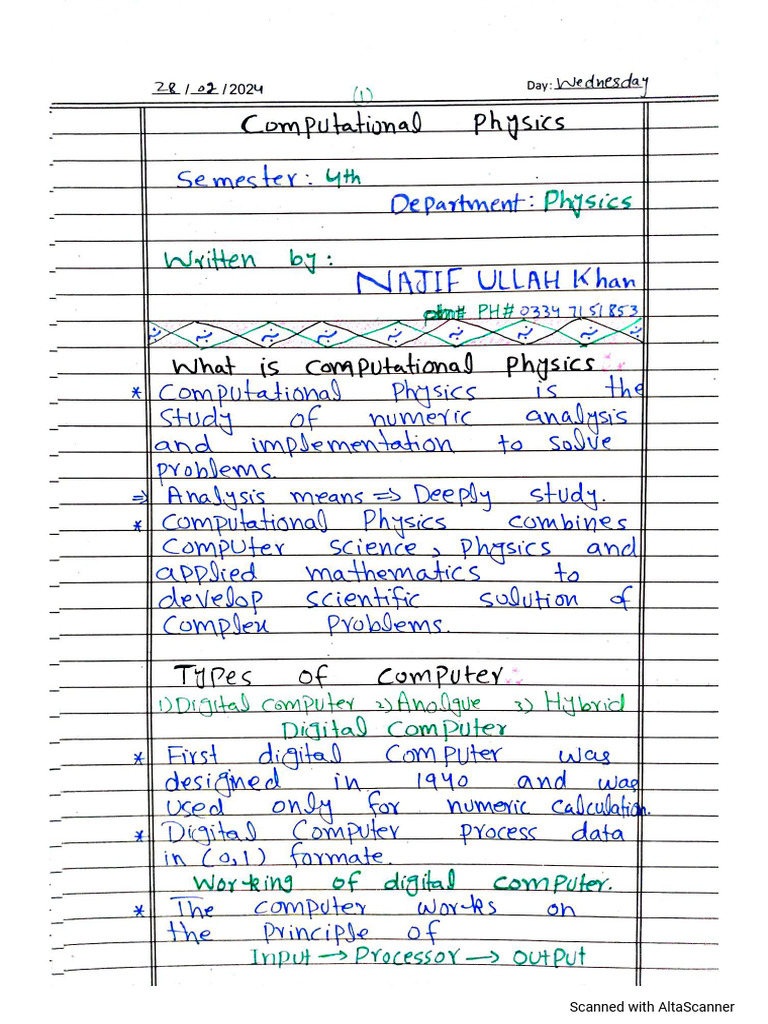 28/02/2024 (1) Day: Wednesday
Computational Physics
Semester: 4th
Department: Physics
Written by:
NAJIF ULLAH Khan
PH# 0334 7151853
What is computational physics
* Computational Physics is the
study of numeric analysis
and implementation to solve
problems.
⇒ Analysis means ⇒ Deeply study.
* Computational Physics combines
Computer science, physics and
applied mathematics to
develop scientific solution of
Complex Problems.
Types of computer
1) Digital computer 2) Analgue 3) Hybrid
Digital Computer
* First digital Computer was
designed in 1940 and was
used only for numeric calculation.
* Digital Computer process data
in (0,1) formate.
Working of digital computer.
* The computer works on
the principle of
Input → Processor → output
Scanned with AltaScanner